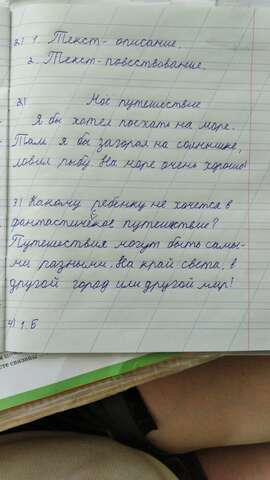 2) 1. Текст - описание.
2. Текст-повествование.
2) Мое путешествие
Я бы хотел поехать на море.
Там я бы загорал на солнышке,
ловил рыбу. На море очень хорошо!
3) Какому ребенку не хочется в
фантастическое путешествие?
Путешествия могут быть самы-
ми разными. На край света, в
другой город или другой мир!
4) 1. Б
сте связаны